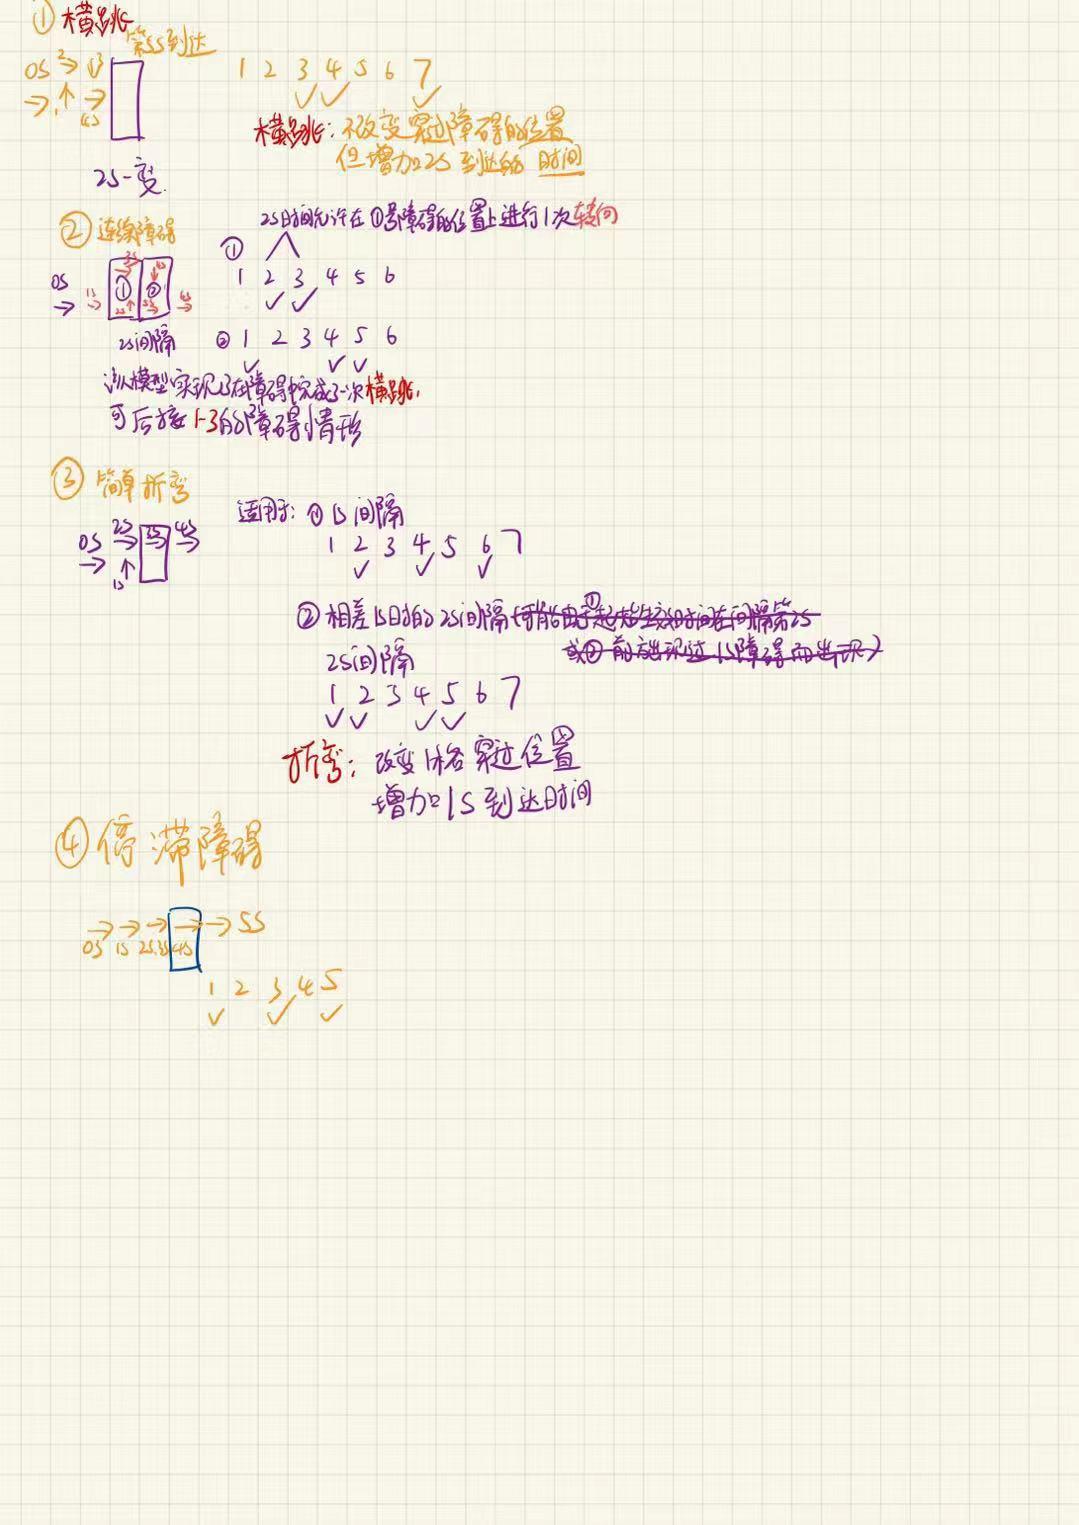 ① 横跳
第5S到达
0S 2 3
1
4S
1 2 3 4 5 6 7
横跳：不改变穿过障碍的位置
但增加2S 到达的 时间
2S一变.
② 连续障碍
2S时间允许在①号障碍的位置上进行1次转向
①
1 2 3 4 5 6
0S 1S ① ② 3S 4S 2S 5S 6S
2S间隔
② 1 2 3 4 5 6
该模型实现了在障碍中完成了一次横跳,
可后接 1-3的障碍情形
③ 简单折弯
0S 1S 2S 3S 4S
适用于: ① 1S 间隔
1 2 3 4 5 6 7
② 相差1S时的2S间隔
2S间隔
1 2 3 4 5 6 7
折弯: 改变1格穿过位置
增加1S到达时间
④ 停滞障碍
0S 1S 2S.3S 4S 5S
1 2 3 4 5